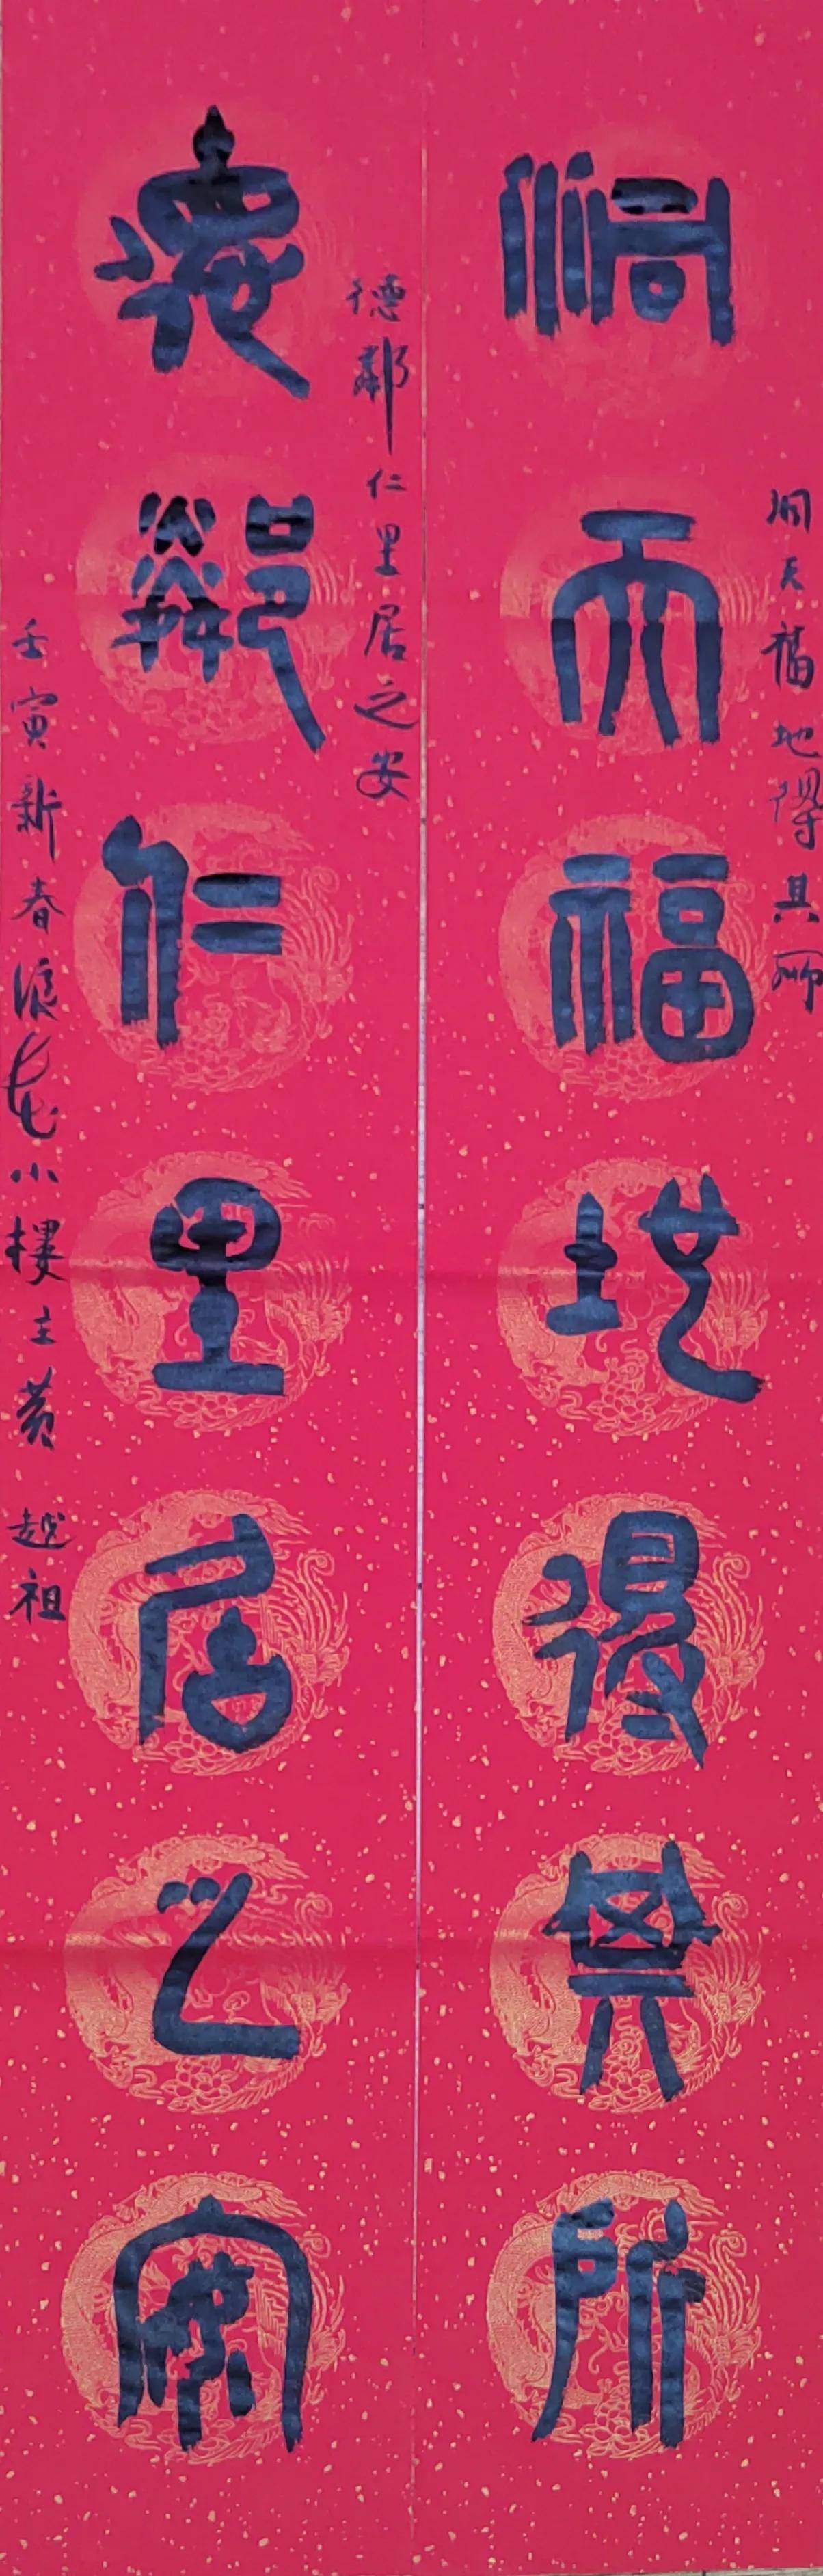 洞天福地得其所
洞天福地得其所
德鄰仁里居之安
德鄰仁里居之安
壬寅新春浪花小樓主黃越祖